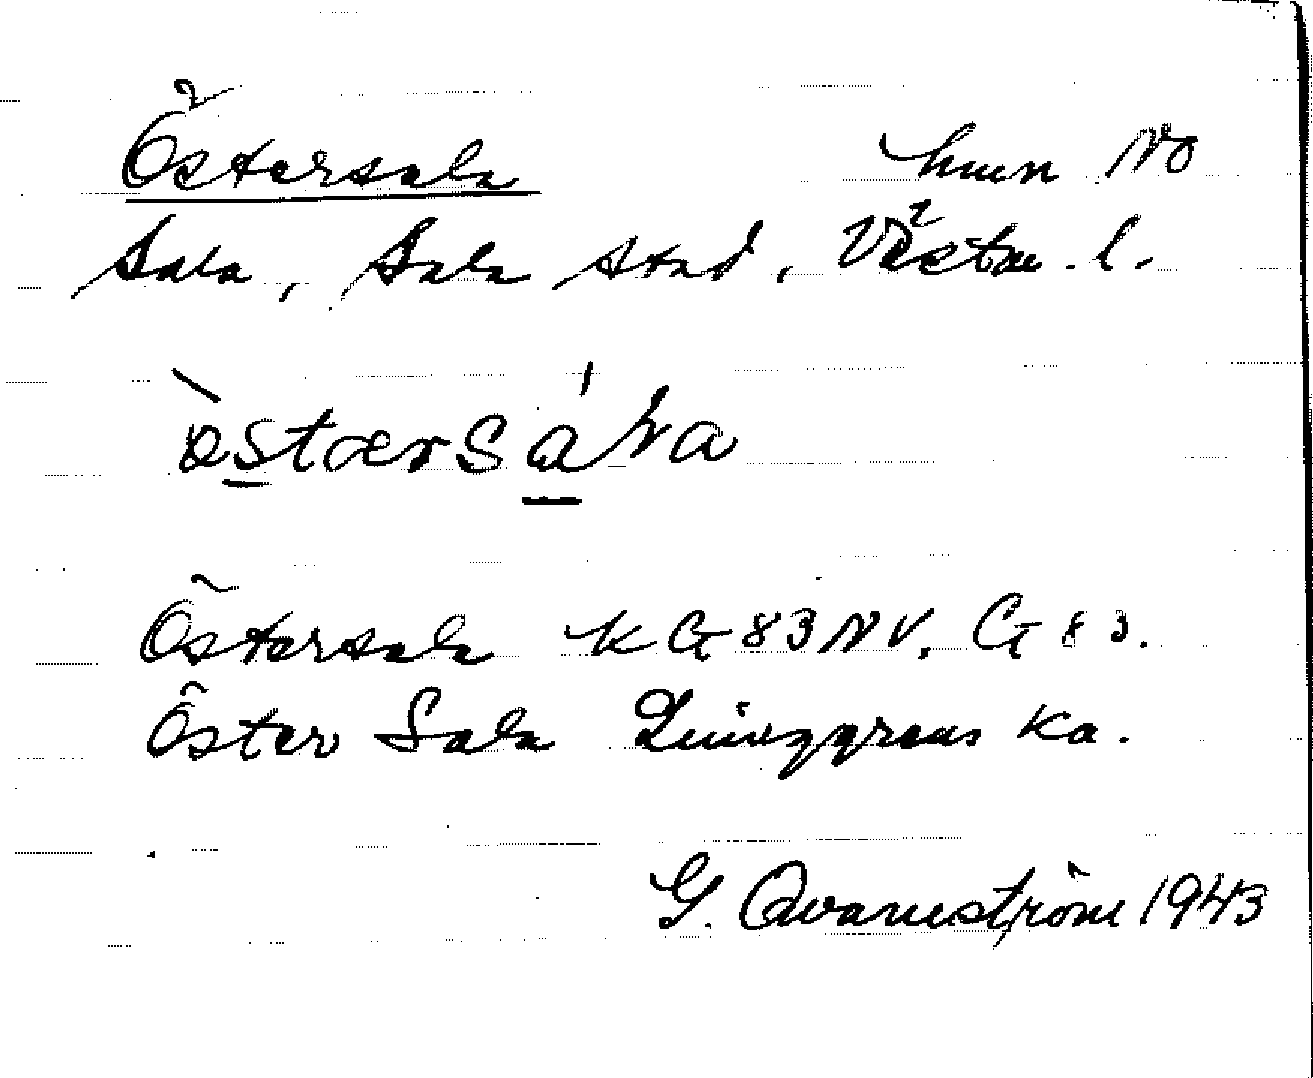 Östersala hmn NO
Sala, Sala stad, Västm. l.
òstærsáƚa
Östersala KG 83 NV. G 83.
Öster Sala Ljunggrens Ka.
G. Qvarnström 1943